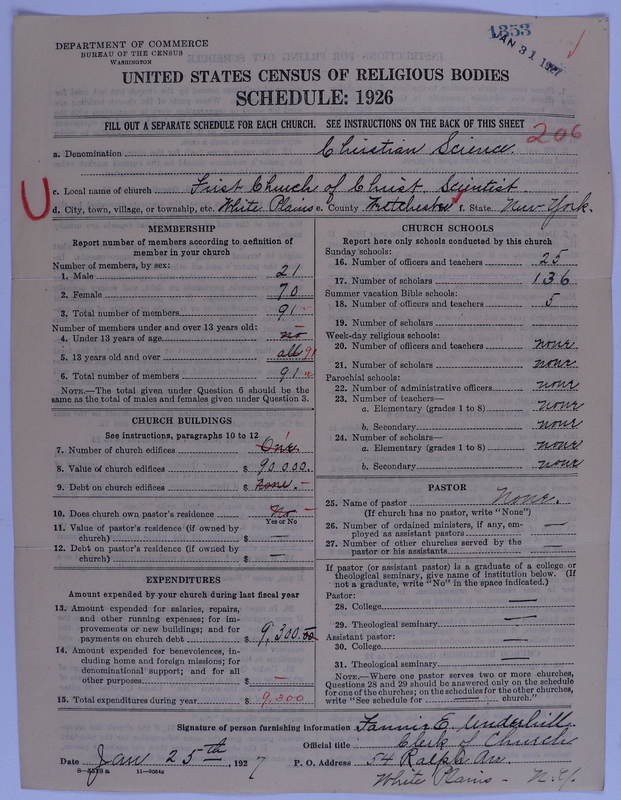 1353
JAN 31 1927
DEPARTMENT OF COMMERCE
BUREAU OF THE CENSUS
WASHINGTON
UNITED STATES CENSUS OF RELIGIOUS BODIES
SCHEDULE: 1926
FILL OUT A SEPARATE SCHEDULE FOR EACH CHURCH. SEE INSTRUCTIONS ON THE BACK OF THIS SHEET
206
a. Denomination Christian Science.
c. Local name of church First Church of Christ, Scientist
d. City, town, village, or township, etc. White Plains e. County Westchester f. State New-York.
MEMBERSHIP
Report number of members according to definition of
member in your church
Number of members, by sex:
1. Male 21
2. Female 70
3. Total number of members 91
Number of members under and over 13 years old:
4. Under 13 years of age no
5. 13 years old and over all 91
6. Total number of members 91
NOTE.—The total given under Question 6 should be the
same as the total of males and females given under Question 3.
CHURCH BUILDINGS
See instructions, paragraphs 10 to 12
7. Number of church edifices One
8. Value of church edifices $ 90 000.
9. Debt on church edifices $ none.
10. Does church own pastor's residence No
Yes or No
11. Value of pastor's residence (if owned by
church) $ —
12. Debt on pastor's residence (if owned by
church) $ —
EXPENDITURES
Amount expended by your church during last fiscal year
13. Amount expended for salaries, repairs,
and other running expenses; for im-
provements or new buildings; and for
payments on church debt $ 9,300.00
14. Amount expended for benevolences, in-
cluding home and foreign missions; for
denominational support; and for all
other purposes $ —
15. Total expenditures during year $ 9,300
CHURCH SCHOOLS
Report here only schools conducted by this church
Sunday schools:
16. Number of officers and teachers 25
17. Number of scholars 136
Summer vacation Bible schools:
18. Number of officers and teachers 5
19. Number of scholars
Week-day religious schools:
20. Number of officers and teachers none
21. Number of scholars none
Parochial schools:
22. Number of administrative officers none
23. Number of teachers—
a. Elementary (grades 1 to 8) none
b. Secondary none
24. Number of scholars—
a. Elementary (grades 1 to 8) none
b. Secondary none
PASTOR
25. Name of pastor None.
(If church has no pastor, write "None")
26. Number of ordained ministers, if any, em-
ployed as assistant pastors —
27. Number of other churches served by the
pastor or his assistants —
If pastor (or assistant pastor) is a graduate of a college or
theological seminary, give name of institution below. (If
not a graduate, write "No" in the space indicated.)
Pastor:
28. College —
29. Theological seminary —
Assistant pastor:
30. College —
31. Theological seminary —
NOTE.—Where one pastor serves two or more churches,
Questions 28 and 29 should be answered only on the schedule
for one of the churches; on the schedules for the other churches,
write "See schedule for — church."
Signature of person furnishing information Fannie E. Underhill.
Official title Clerk of Church
Date Jan 25th, 1927 P. O. Address 54 Ralph Av.
White Plains - N.Y.
8—5519 a 11—9054